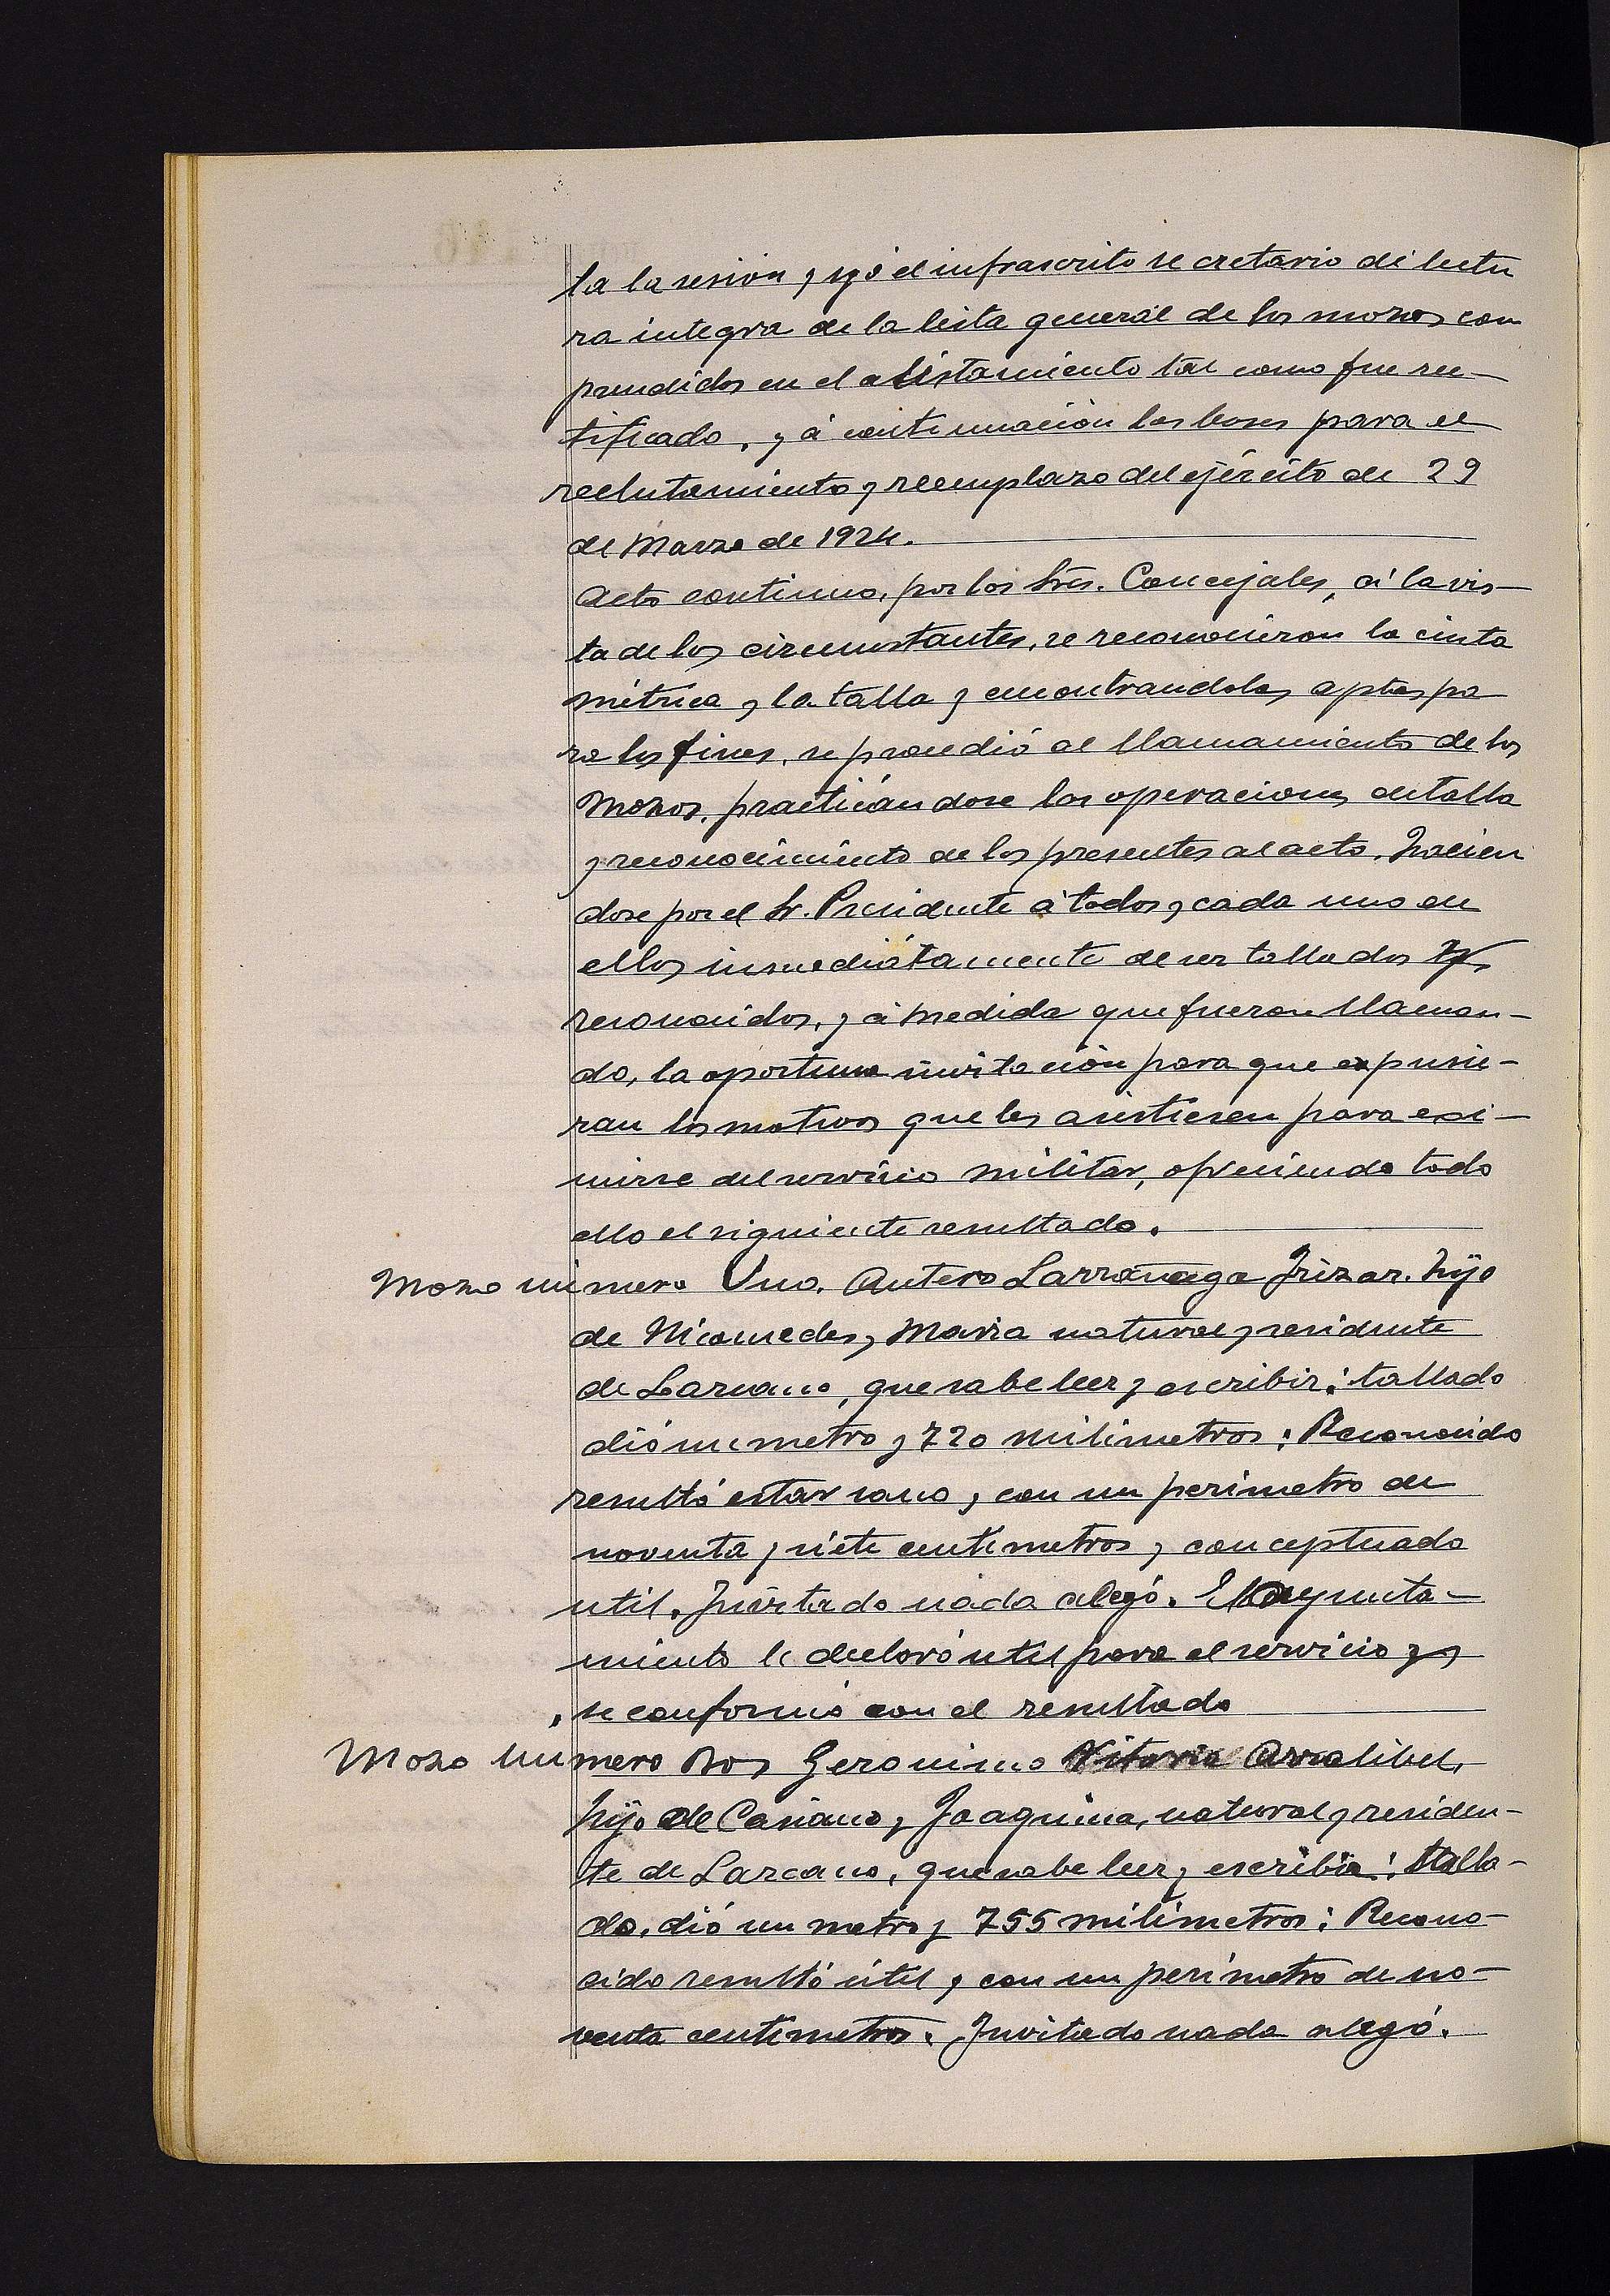 ta la sesión y yo el infrascrito secretario dí lectu
ra integra de la lista general de los mozos com
prendidos en el alistamiento tal como fue rec-
tificado, y á continuación las bases para el
reclutamiento y reemplazo del ejército de 29
de Marzo de 1924.
Acto continuo, por los Sres. Concejales, á la vis-
ta de los circunstantes, se reconocieron la cinta
métrica y la talla y encontrandolas aptas pa
ra los fines, se procedió al llamamiento de los
Mozos, practicándose las operaciones de talla
y reconocimiento de los presentes al acto, hacien
dose por el Sr. Presidente á todos y cada uno de
ellos inmediatamente de ser tallados y
reconocidos, y á medida que fueron llaman-
do, la oportuna invitación para que expusie-
ran los motivos que les asistiesen para exi-
mirse del servicio militar, ofreciendo todo
ello el siguiente resultado.
Mozo número Uno. Antero Larrañaga Irizar. hijo
de Nicomedes y Maria natural y residente
de Lazcano, que sabe leer y escribir; tallado
dió un metro y 720 milimetros: Reconocido
resultó estar sano y con un perimetro de
noventa y siete centimetros y conceptuado
util. Invitado nada alegó. El Ayunta-
miento le declaró util para el servicio y
se conformó con el resultado
Mozo número Dos Geronimo Vitoria Arratibel,
hijo de Casiano y Joaquina, natural y residen-
te de Lazcano, que sabe leer y escribir: talla-
do, dió un metro y 755 milimetros: Recono-
cido resultó útil y con un perimetro de no-
venta centimetros. Invitado nada alegó.